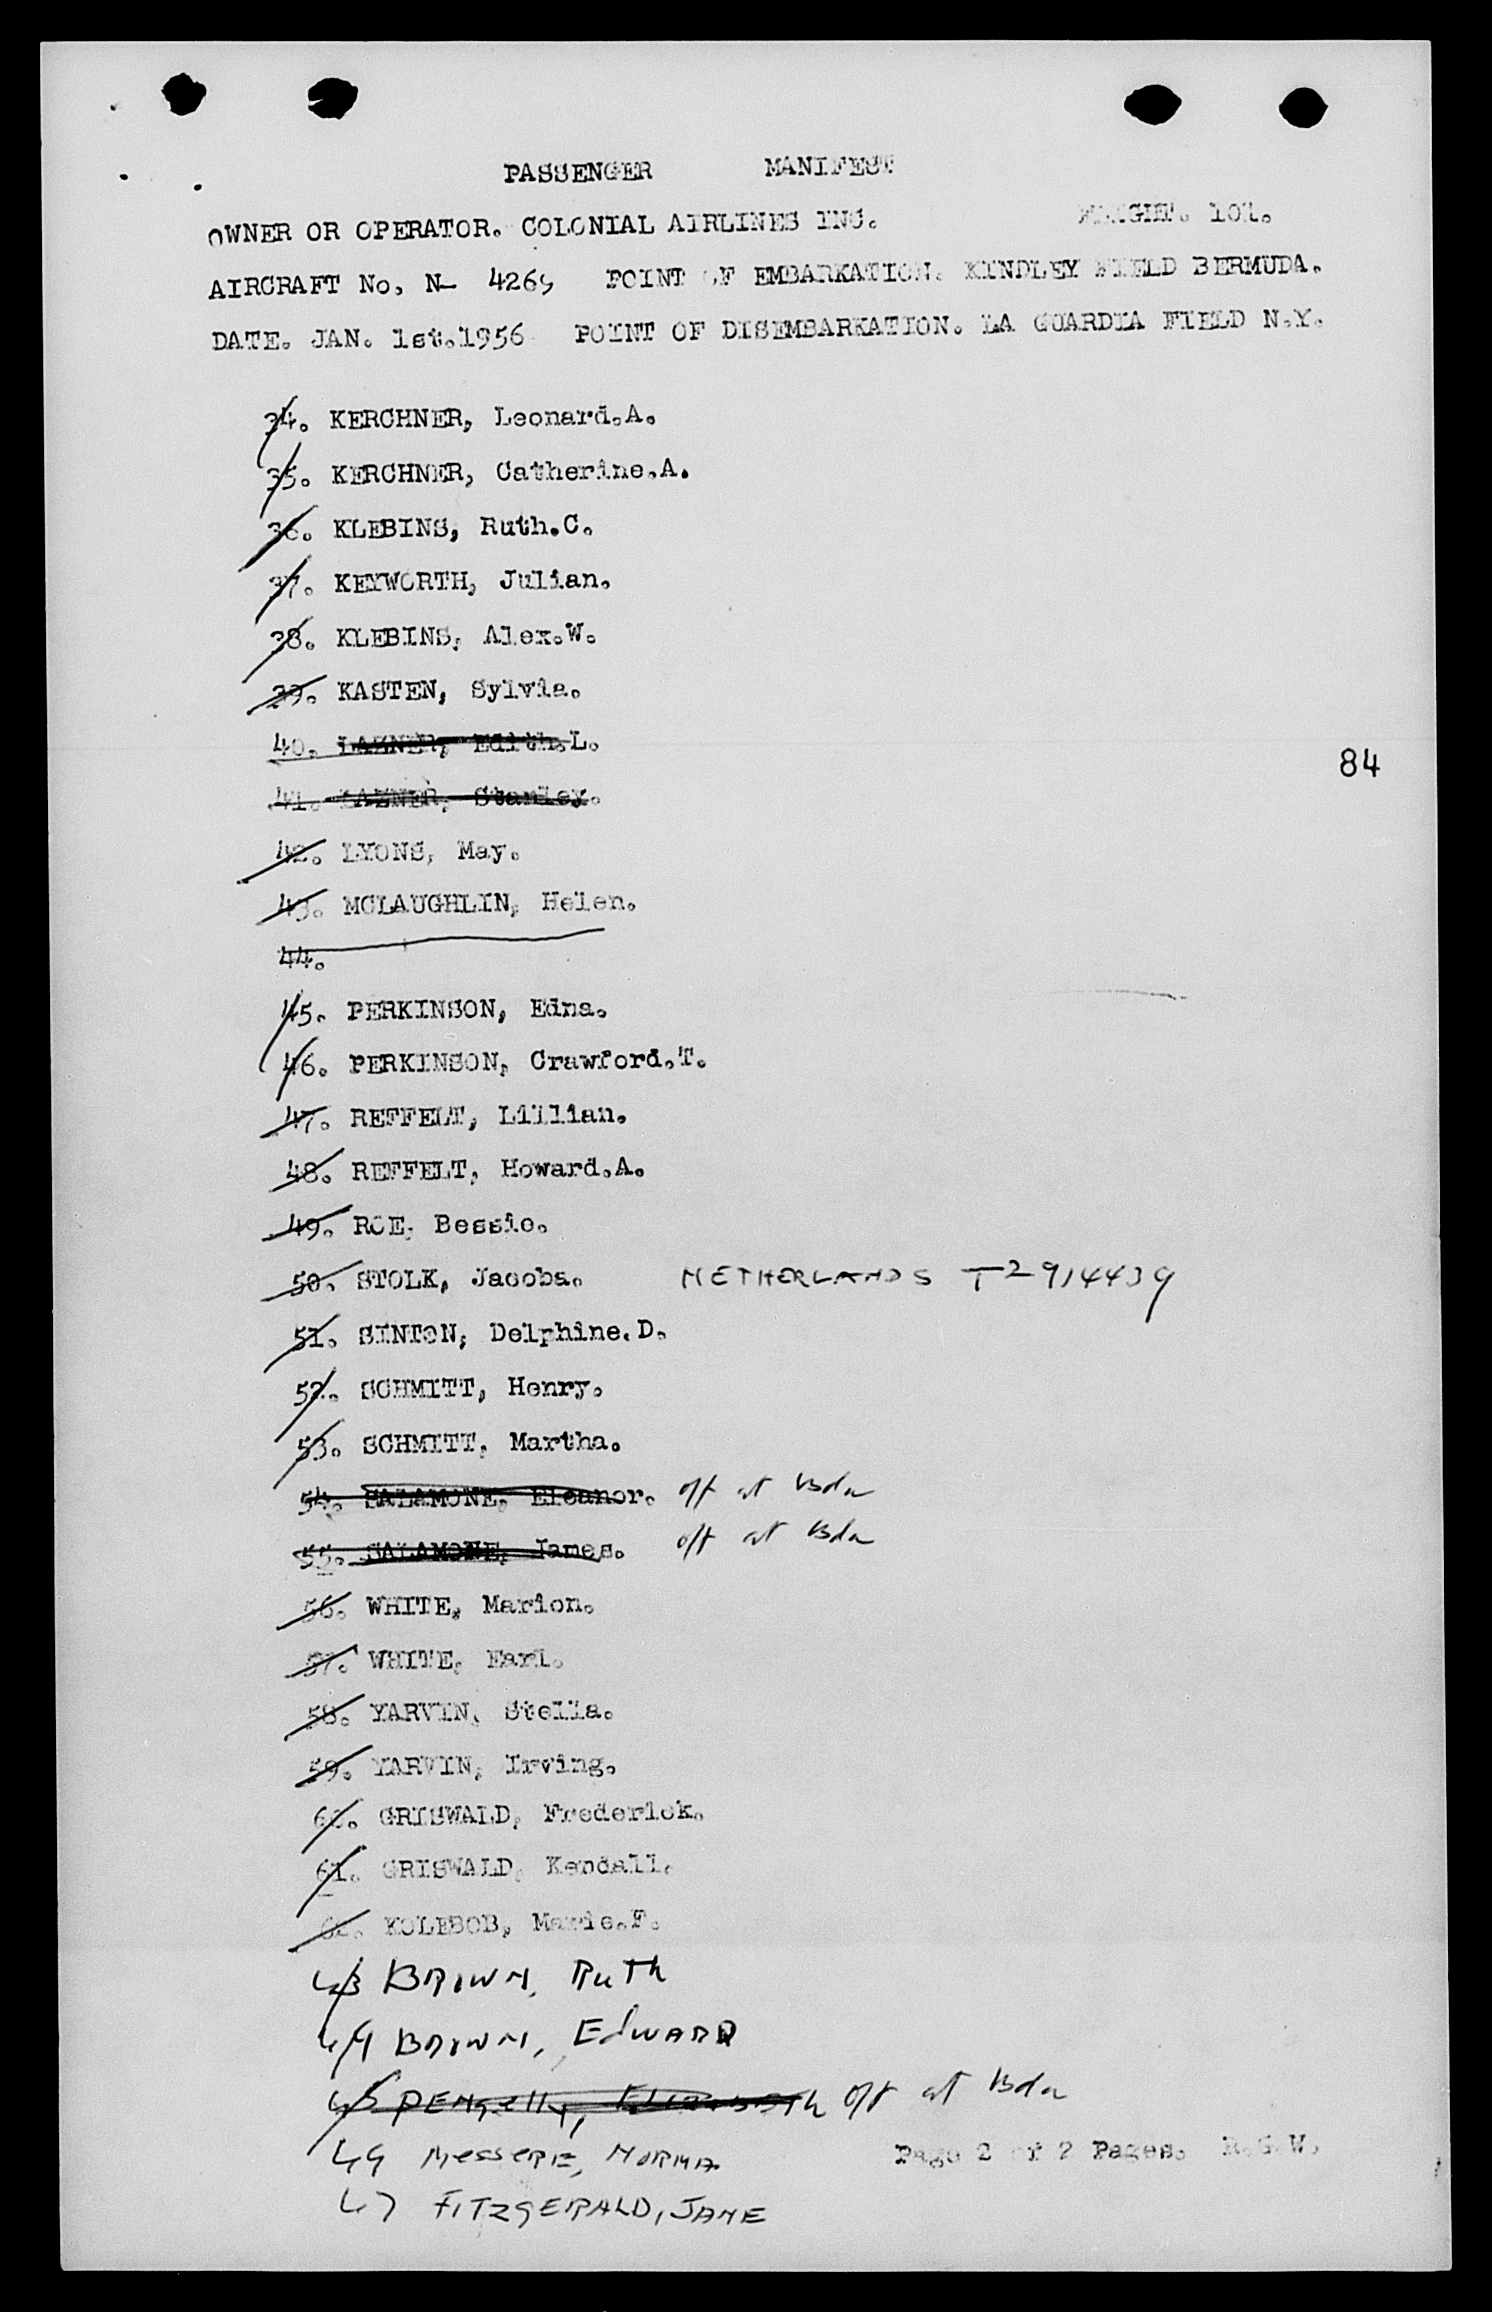 PASSENGER MANIFEST
OWNER OR OPERATOR. COLONIAL AIRLINES INC. FLIGHT. 101.
AIRCRAFT No, N- 4269 POINT OF EMBARKATION. KINDLEY FIELD BERMUDA.
DATE. JAN. 1st.1956 POINT OF DISEMBARKATION. LA GUARDIA FIELD N.Y.
34. KERCHNER, Leonard.A.
35. KERCHNER, Catherine.A.
36. KLEBINS, Ruth.C.
37. KEYWORTH, Julian.
38. KLEBINS, Alex.W.
39. KASTEN, Sylvia.
40. LAZNER, Edith.L.
84
41. LAZNER, Stanley.
42. LYONS, May.
43. MCLAUGHLIN, Helen.
44.
45. PERKINSON, Edna.
46. PERKINSON, Crawford.T.
47. REFFELT, Lillian.
48. REFFELT, Howard.A.
49. ROE, Bessie.
50. STOLK, Jacoba. NETHERLANDS T2914439
51. SINTON, Delphine.D.
52. SCHMITT, Henry.
53. SCHMITT, Martha.
54. SALAMONE, Eleanor. off at Bda
55. SALAMONE, James. off at Bda
56. WHITE, Marion.
57. WHITE, Earl.
58. YARVIN, Stella.
59. YARVIN, Irving.
60. GRISWALD, Frederick.
61. GRISWALD, Kendall.
62. KOLEBOB, Marie.F.
63 BROWN, RuTh
64 BROWN, EdWARD
65 PENgelly, ELIZABETh off at Bda
66 MesseRE, NORMA
Page 2 of 2 Pages. R.G.W.
67 FITZGERALD, JANE